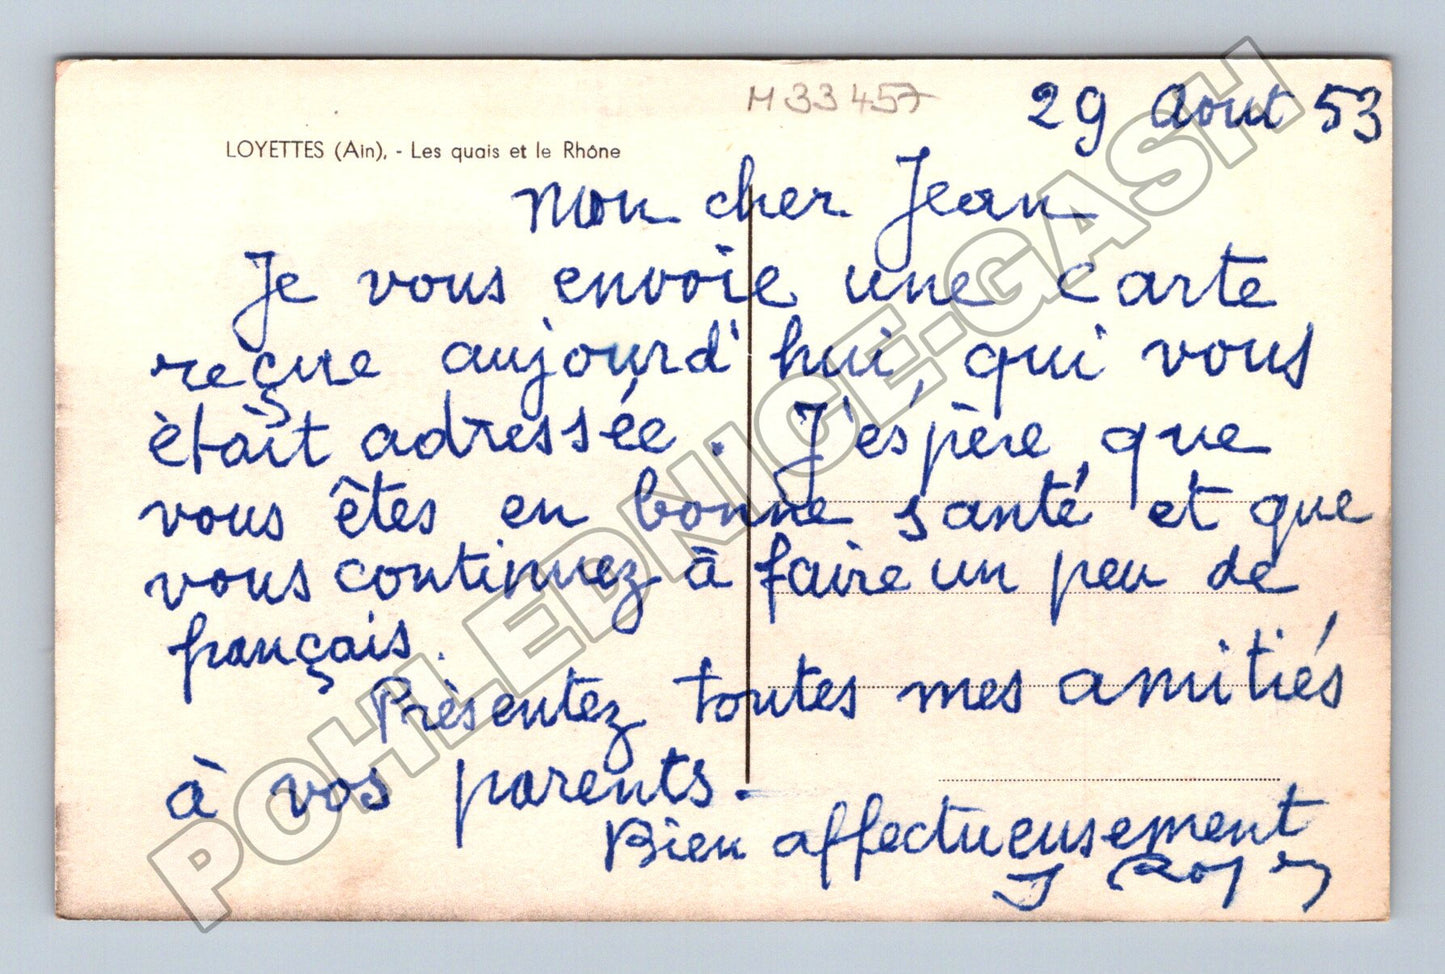 M 33457
29 Aout 53
LOYETTES (Ain). - Les quais et le Rhône
Mon cher Jean
Je vous envoie une carte
reçue aujourd'hui, qui vous
ètait adressée. J'éspère que
vous êtes en bonne santé, et que
vous continuez à faire un peu de
français.
Présentez toutes mes amitiés
à vos parents.
Bien affectueusement
J
POHLEDNICE-GASH